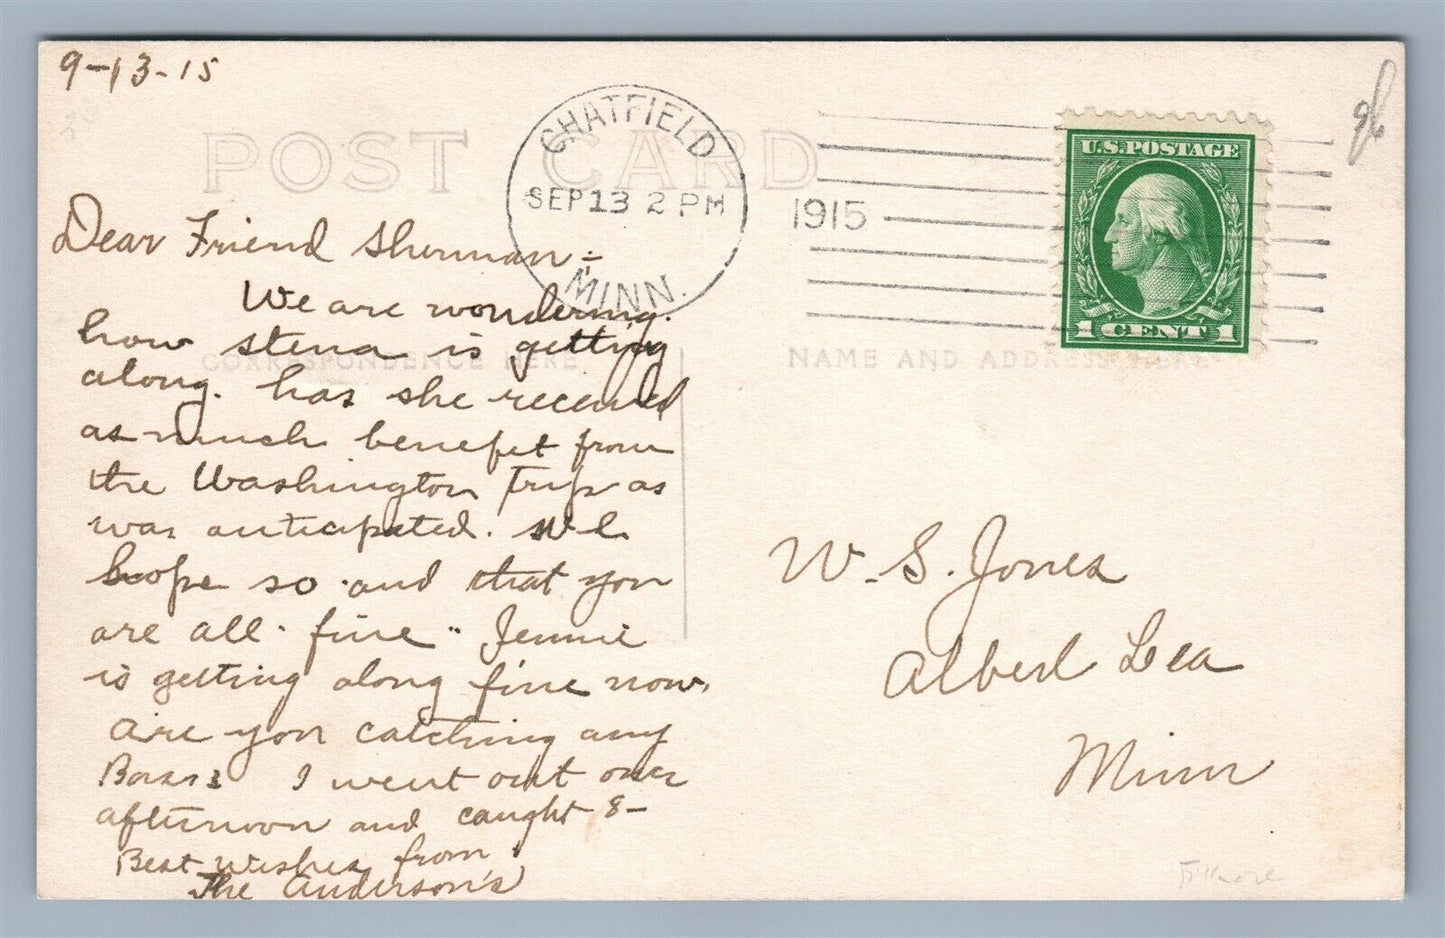 9-13-15
POST CARD
CHATFIELD
SEP 13 2 PM
MINN.
1915
U.S. POSTAGE
1 CENT 1
Dear Friend Sherman:-
We are wondering
how Stena is getting
along. has she received
as much benefit from
the Washington Trip as
was anticipated. We
hope so and that you
are all fine. Jennie
is getting along fine now.
are you catching any
Bass? I went out one
afternoon and caught 8-
Best Wishes from
The Anderson's
CORRESPONDENCE HERE
NAME AND ADDRESS HERE
W. S. Jones
Albert Lea
Minn
Fillmore